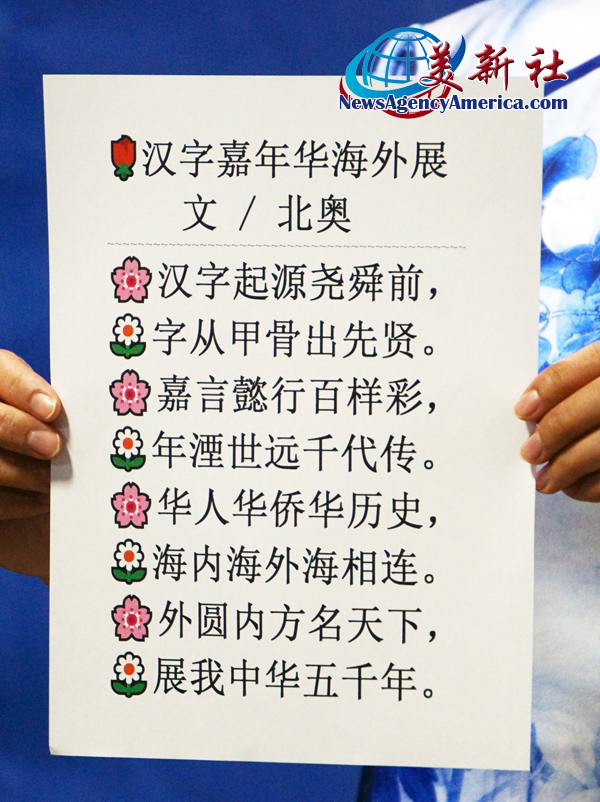 美新社
NewsAgencyAmerica.com
汉字嘉年华海外展
文 / 北奥
汉字起源尧舜前，
字从甲骨出先贤。
嘉言懿行百样彩，
年湮世远千代传。
华人华侨华历史，
海内海外海相连。
外圆内方名天下，
展我中华五千年。